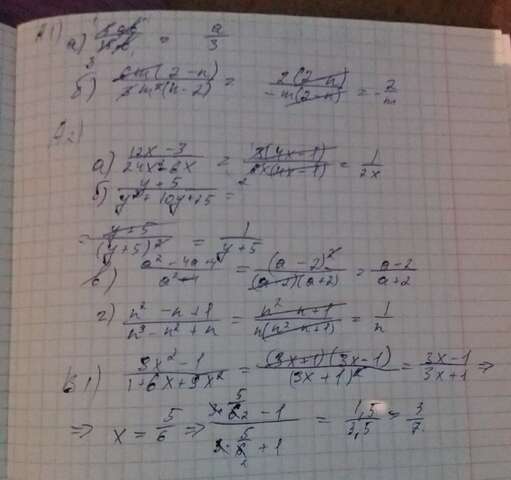 A1)
а) 5ab/15b = a/3
б) 6m(2-n)/3m²(n-2) = 2(2-n)/-m(2-n) = -2/m
A2)
а) 12x-3/24x²-6x = 3(4x-1)/6x(4x-1) = 1/2x
б) y+5/y²+10y+25 =
= y+5/(y+5)² = 1/y+5
в) a²-4a+4/a²-4 = (a-2)²/(a-2)(a+2) = a-2/a+2
г) n²-n+1/n³-n²+n = n²-n+1/n(n²-n+1) = 1/n
В1) 9x²-1/1+6x+9x² = (3x+1)(3x-1)/(3x+1)² = 3x-1/3x+1 ⇒
⇒ x = 5/6 ⇒ 3·5/6-1/3·5/6+1 = 1,5/3,5 = 3/7